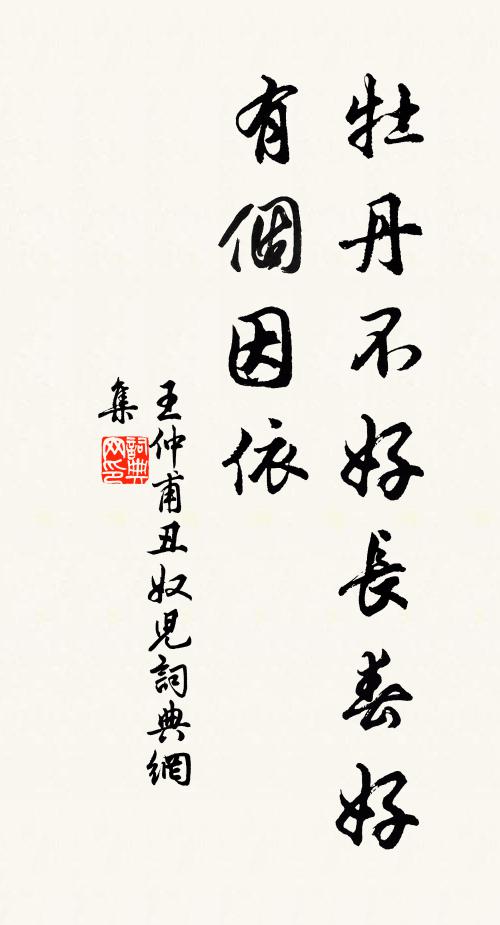 牡丹不好長春好
有個因依
王仲甫丑奴兒詞典網
集
詞典網印